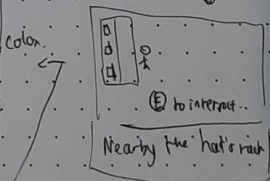 Color.
Ⓔ to interact..
Nearby the hat's rack